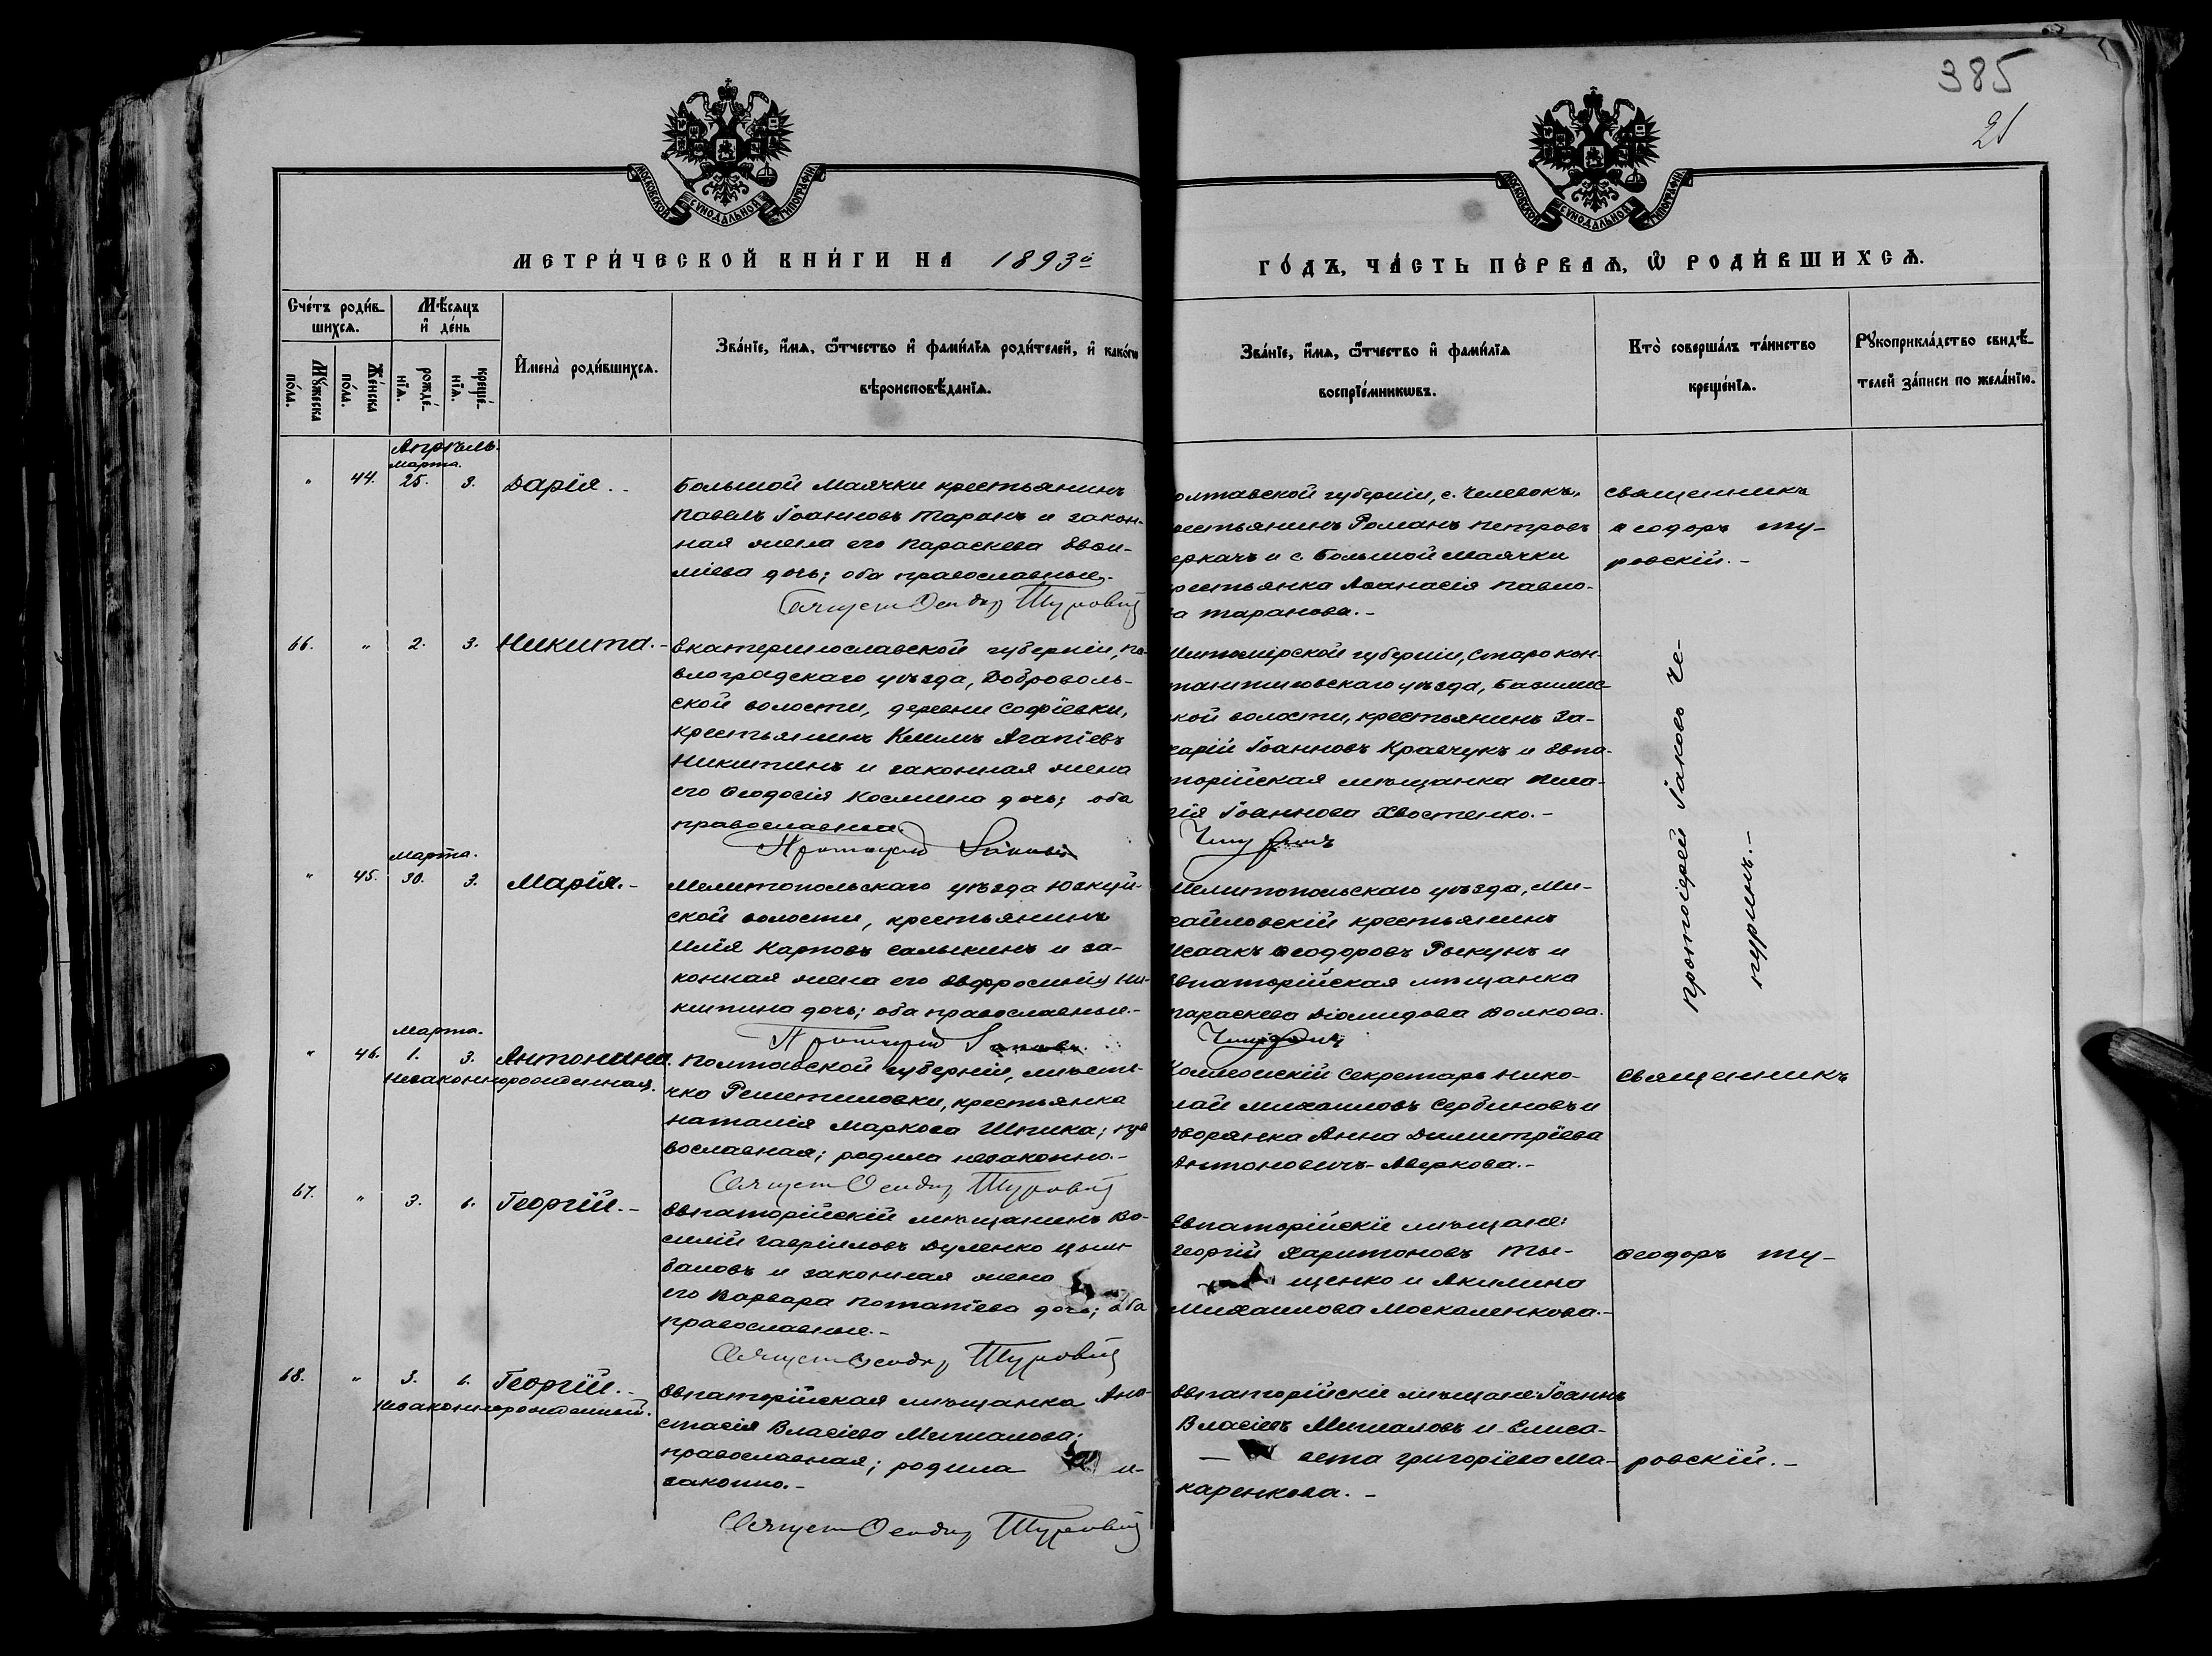 385
21
МОСКОВСКОЙ СѴНОДАЛЬНОЙ ТИПОГРАФІИ
МОСКОВСКОЙ СѴНОДАЛЬНОЙ ТИПОГРАФІИ
МЕТРИ́ЧЕСКОЙ КНИ́ГИ НА 1893й
ГО́ДЪ, ЧА́СТЬ ПЕ́РВАѦ, Ѡ РОДИ́ВШИХСѦ.
Сче́тъ роди́в-
шихсѧ.
Мꙋжеска по́ла.
Же́нска по́ла.
Мѣ́сяцъ и де́нь
рожде́-
нїѧ.
креще́-
нїѧ.
Имена̀ роди́вшихсѧ.
Зва́нїе, и́мѧ, ѻ҆́тчество и фами́лїѧ роди́телей, и како́гѡ
вѣроисповѣ́данїѧ.
Зва́нїе, и́мѧ, ѻ҆́тчество и фами́лїѧ
воспрїе́мникѡвъ.
Кто̀ соверша́лъ та́инство
креще́нїѧ.
Рꙋкоприкла́дство свидѣ́-
телей за́писи по жела́нїю.
Апрѣль.
Марта.
" 44. 25. 3. Дарія.-
Большой Маячки крестьянинъ
Павелъ Іоанновъ Таранъ и закон-
ная жена его Параскева Евѳи-
міева дочь; оба православные.-
Священ Ѳеодор Туровскій
олтавской губерніи, с.
рестьянинъ Романъ Петровъ
еркачъ и с. Большой Маячки
рестьянка Аѳанасія Павло-
ва Таранова.-
Священникъ
Ѳеодоръ Ту-
ровскій.-
66. " 2. 3. Никита.-
Екатеринославской губерніи, Па-
влоградскаго уѣзда, Доброволь-
ской волости, деревни Софіевки,
крестьянинъ Климъ Агапіевъ
Никитинъ и законная жена
его Ѳеодосія Космина дочь; оба
православные.
Протоіерей Іаковъ Чепуринъ
Житомірской губерніи, Старокон-
стантиновскаго уѣзда,
ской волости, крестьянинъ За-
харій Іоанновъ Кравчукъ и Евпа-
торійская мѣщанка Пела-
гія Іоаннова Хвостенко.-
Протоіерей Іаковъ Че-
пуринъ.-
Марта.
" 45. 30. 3. Марія.-
Мелитопольскаго уѣзда Юзкуй-
ской волости, крестьянинъ
Илія Карповъ Салыкинъ и за-
конная жена его Евфросинія Ни-
китина дочь; оба православные.-
Протоіерей Іаковъ Чепуринъ
Мелитопольскаго уѣзда, Ми-
хайловскій крестьянинъ
Исаакъ Ѳеодоровъ Рыкунъ и
Евпаторійская мѣщанка
Параскева Діомидова Волкова.
Марта.
" 46. 1. 3. Антонина.
Незаконнорожденная.
Полтавской губерніи, мѣсте-
чка Решетиловки, крестьянка
Наталія Маркова Шпика; пра
вославная; родила незаконно.-
Священ Ѳеодор Туровскій
Коллежскій Секретарь Нико-
лай Михаиловъ Сербиновъ и
дворянка Анна Димитріева
Антоновичъ-Аверкова.-
Священникъ
67. " 3. 6. Георгій.-
Евпаторійскій мѣщанинъ Ва-
силій Гавріиловъ Дуленко Цым-
баловъ и законная жена
его Варвара Потапіева дочь; оба
православные.-
Священ Ѳеодор Туровскій
Евпаторійскіе мѣщане:
Георгій Харитоновъ Ты-
щенко и Акилина
Михаилова Москаленкова.-
Ѳеодоръ Ту-
68. " 3. 6. Георгій.-
Незаконнорожденный.
Евпаторійская мѣщанка Ана-
стасія Власіева
православная; родила не-
законно.-
Священ Ѳеодор Туровскій
Евпаторійскіе мѣщане: Іоаннъ
Власіевъ и Елиса-
вета Григоріева Ма-
каренкова.-
ровскій.-